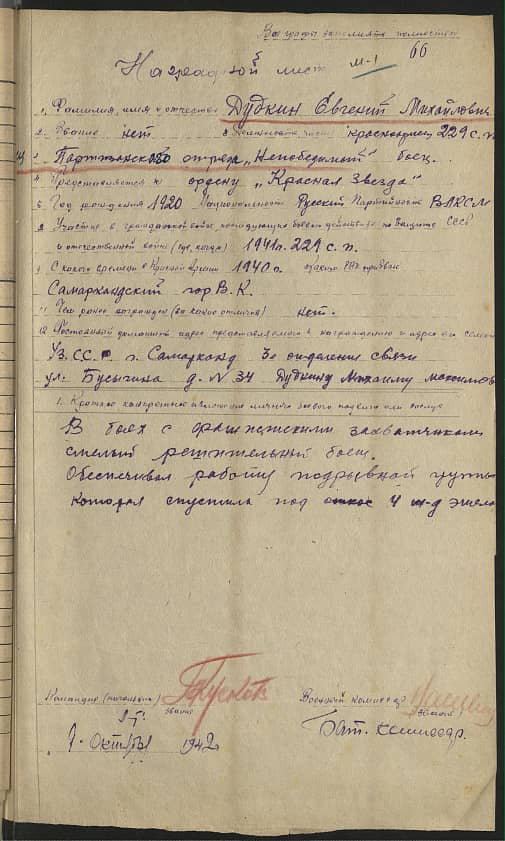 Все графы заполнять полностью
66
Наградной лист М-1
1. Фамилия, имя и отчество Дудкин Евгений Михайлович
2. Звание нет красноармеец 229 с.п.
Партизанского отряда „Непобедимый" боец.
4. Представляется к ордену „Красная Звезда"
5. Год рождения 1920 Национальность Русский Партийность ВЛКСМ
8. Участие в гражданской войне, последующих боевых действиях по защите СССР
и отечественной войне (где, когда) 1941г. 229 с.п.
9. С какого времени в Красной Армии 1940 г. каким РВК призван
Самаркандский гор В.К.
11. Чем ранее награжден (за какие отличия) нет.
12. Постоянный домашний адрес представляемого к награждению и адрес его семьи
Уз.ССР г. Самарканд 3е отделение связи
ул. Бусыгина д. N 34 Дудкину Михаилу Максимов
1. Краткое конкретное изложение личного боевого подвига или заслуг
В боях с фашистскими захватчиками
смелый решительный боец.
Обеспечивал работу подрывной группы
которая спустила под откос 4 ж-д эшело
Командир (начальник)
Военный комиссар
звание
звание
Бат. комиссар.
1 Октября 1942